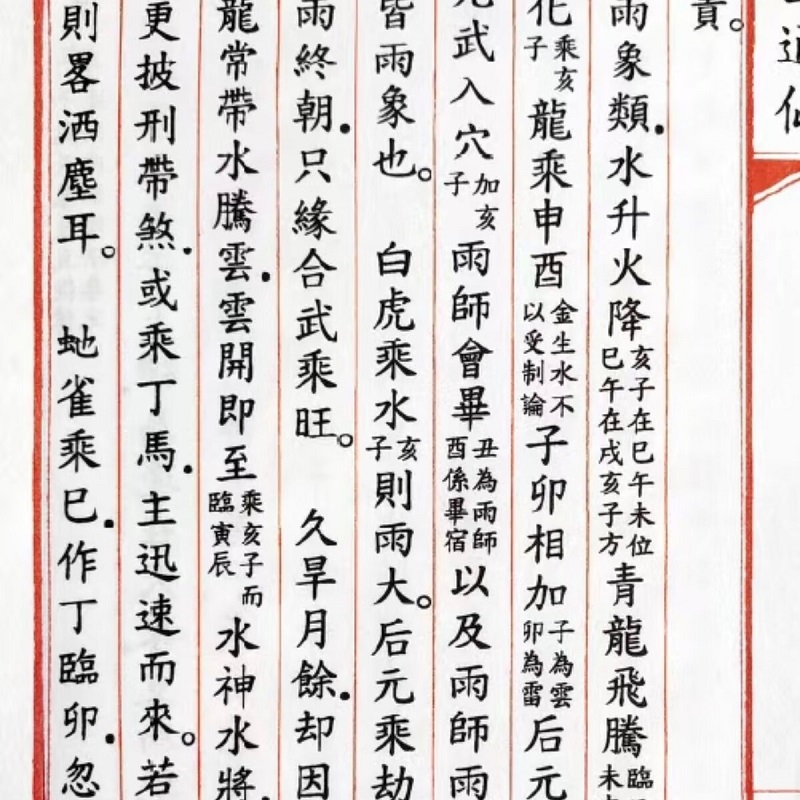 道
責。
雨象類．水升火降亥子在巳午未位巳午在戌亥子方青龍飛騰臨未
化乘亥子龍乘申酉金生水不以受制論子卯相加子為雲卯為雷后元
武入穴加亥子雨師會畢丑為雨師酉係畢宿以及雨師雨
皆雨象也。　白虎乘水亥子則雨大。后元乘劫
雨終朝．只緣合武乘旺。　久旱月餘．却因
龍常帶水騰雲．雲開即至乘亥子而臨寅辰水神水將．
更披刑帶煞．或乘丁馬．主迅速而來。若
則畧洒塵耳。　虵雀乘巳．作丁臨卯．忽